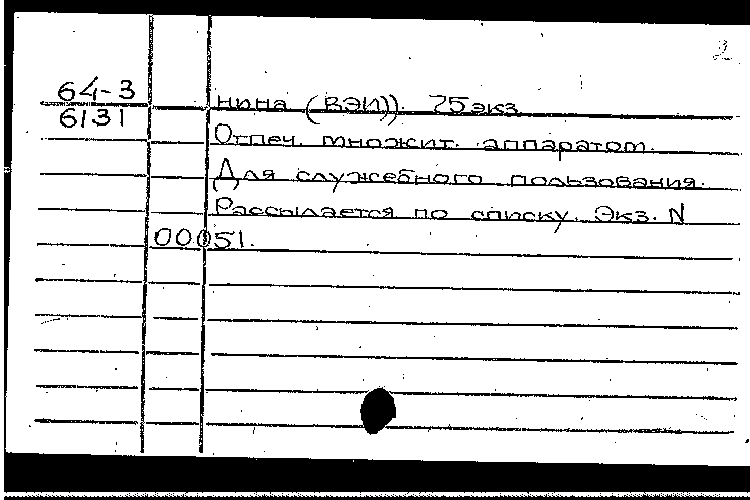 2
64-3
6131
нина (ВЭИ)). 75экз
Отпеч. множит. аппаратом.
Для служебного пользования.
Рассылается по списку. Экз. N
00051.